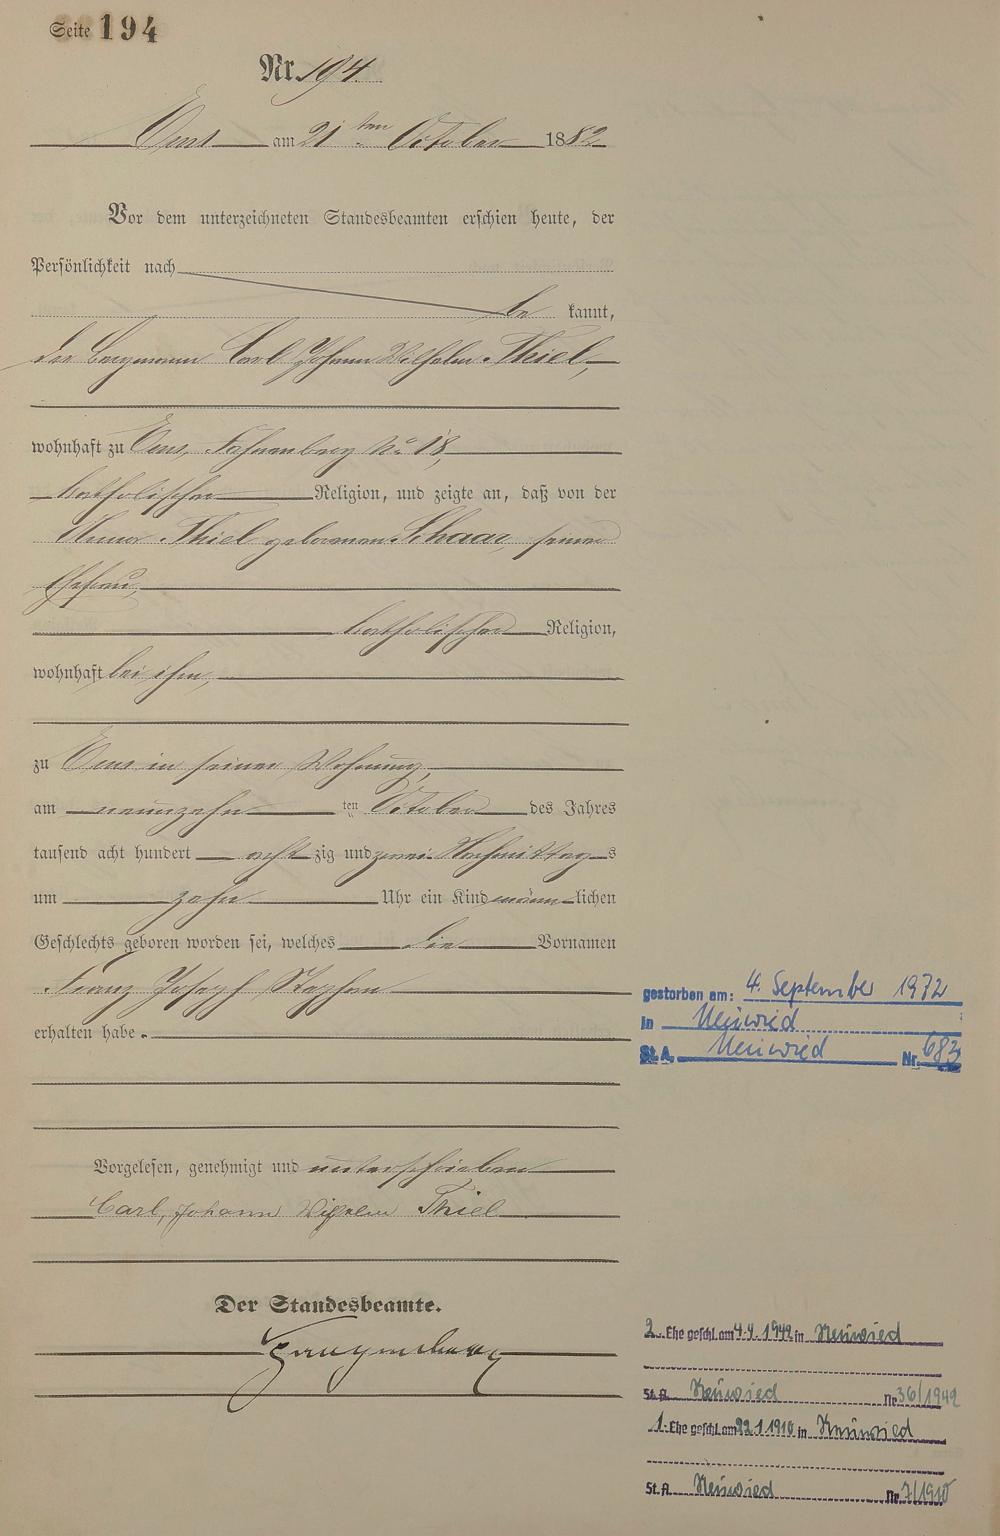 Seite 194
Nr. 194
Ems am 21ten October 1882
Vor dem unterzeichneten Standesbeamten erschien heute, der
Persönlichkeit nach
be kannt,
der Bergmann Carl Johann Wilhelm Thiel,
wohnhaft zu Ems, No 18,
katholischer Religion, und zeigte an, daß von der
Thiel geborenen Schaar, seiner
Ehefrau,
katholischer Religion,
wohnhaft bei ihm,
zu Ems in seiner Wohnung,
am neunzehn ten October des Jahres
tausend acht hundert acht zig und zwei Nachmittag s
um zehn Uhr ein Kind männ lichen
Geschlechts geboren worden sei, welches die Vornamen
Franz Joseph Stephan
erhalten habe.
gestorben am: 4. September 1972
in Neuwied
St.A. Neuwied Nr. 683
Vorgelesen, genehmigt und unterschrieben
Carl, Johann Wilhelm Thiel
Der Standesbeamte.
2. Ehe geschl. am 4.4.1942 in Neuwied
St.A. Neuwied Nr 36/1942
1. Ehe geschl. am 22.1.1910 in Neuwied
St.A. Neuwied Nr. 7/1910